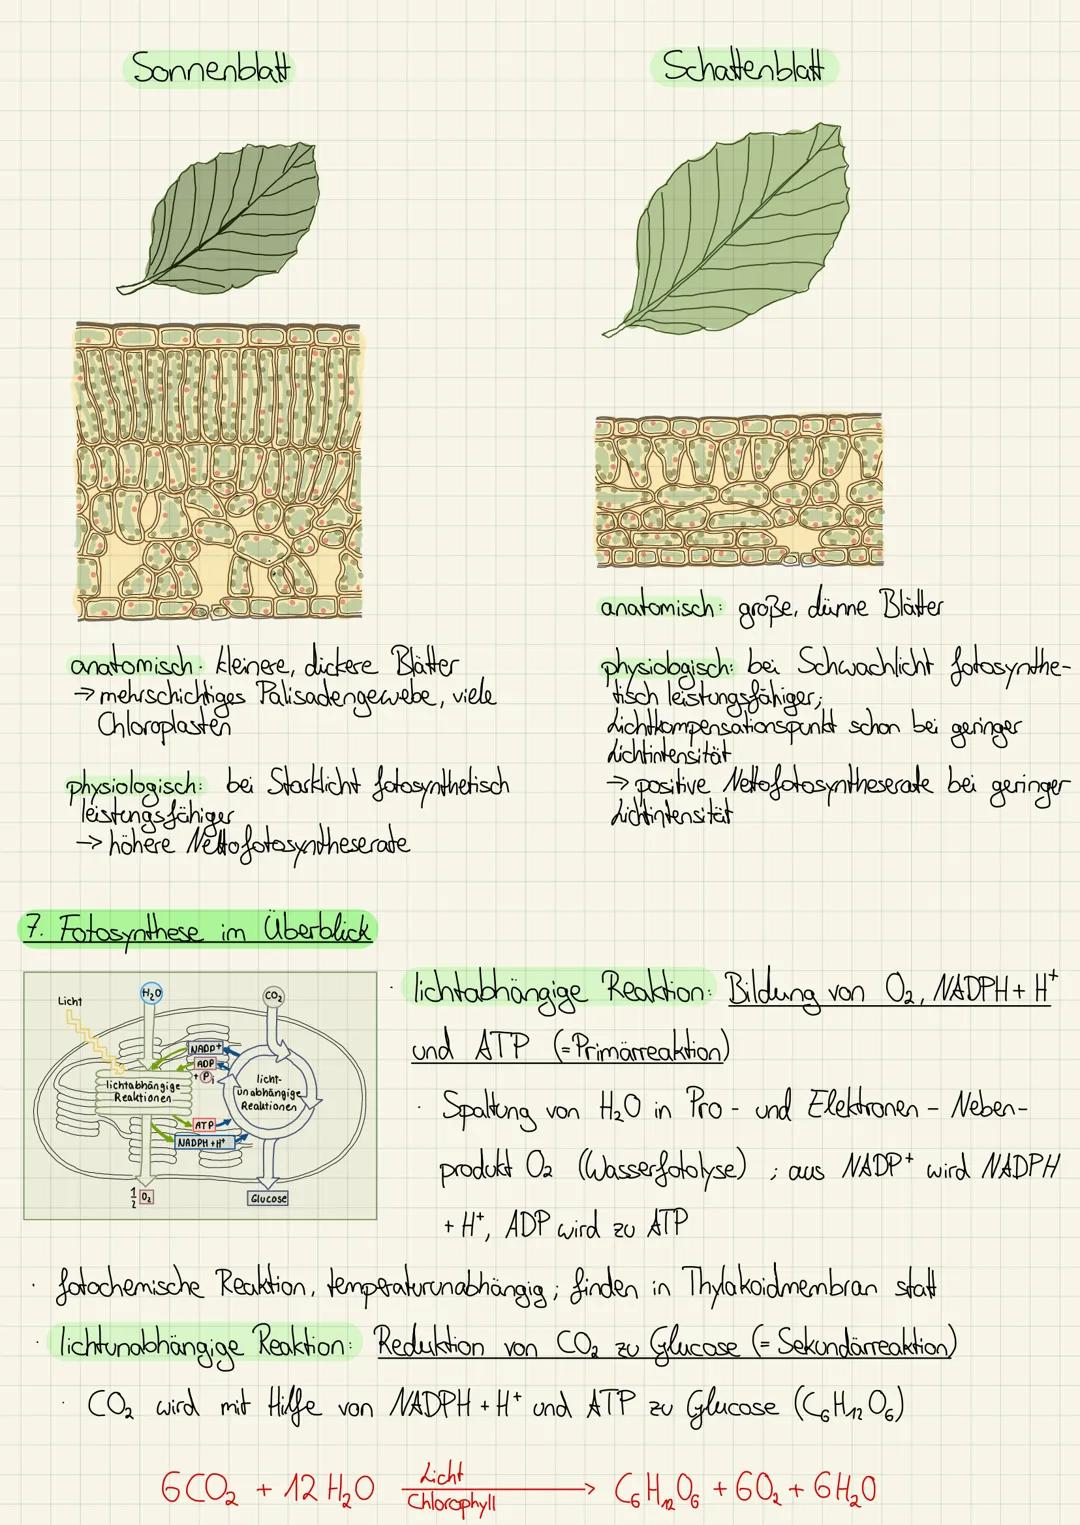 Sonnenblatt
Schattenblatt
anatomisch: kleinere, dickere Blätter
→ mehrschichtiges Palisadengewebe, viele
Chloroplasten
physiologisch: bei Starklicht fotosynthetisch
leistungsfähiger
→ höhere Nettofotosyntheserate
anatomisch: große, dünne Blätter
physiologisch: bei Schwachlicht fotosynthe-
tisch leistungsfähiger;
Lichtkompensationspunkt schon bei geringer
Lichtintensität
→ positive Nettofotosyntheserate bei geringer
Lichtintensität
7. Fotosynthese im Überblick
Licht
H₂O
CO₂
NADP+
ADP
+ P i
lichtabhängige
Reaktionen
licht-
unabhängige
Reaktionen
ATP
NADPH + H⁺
½ O₂
Glucose
· lichtabhängige Reaktion: Bildung von O₂, NADPH + H⁺
und ATP (= Primärreaktion)
· Spaltung von H₂O in Pro- und Elektronen - Neben-
produkt O₂ (Wasserfotolyse) ; aus NADP⁺ wird NADPH
+ H⁺, ADP wird zu ATP
· fotochemische Reaktion, temperaturunabhängig; finden in Thylakoidmembran statt
· lichtunabhängige Reaktion: Reduktion von CO₂ zu Glucose (= Sekundärreaktion)
· CO₂ wird mit Hilfe von NADPH + H⁺ und ATP zu Glucose (C₆H₁₂O₆)
6CO₂ + 12H₂O Licht Chlorophyll → C₆H₁₂O₆ + 6O₂ + 6H₂O